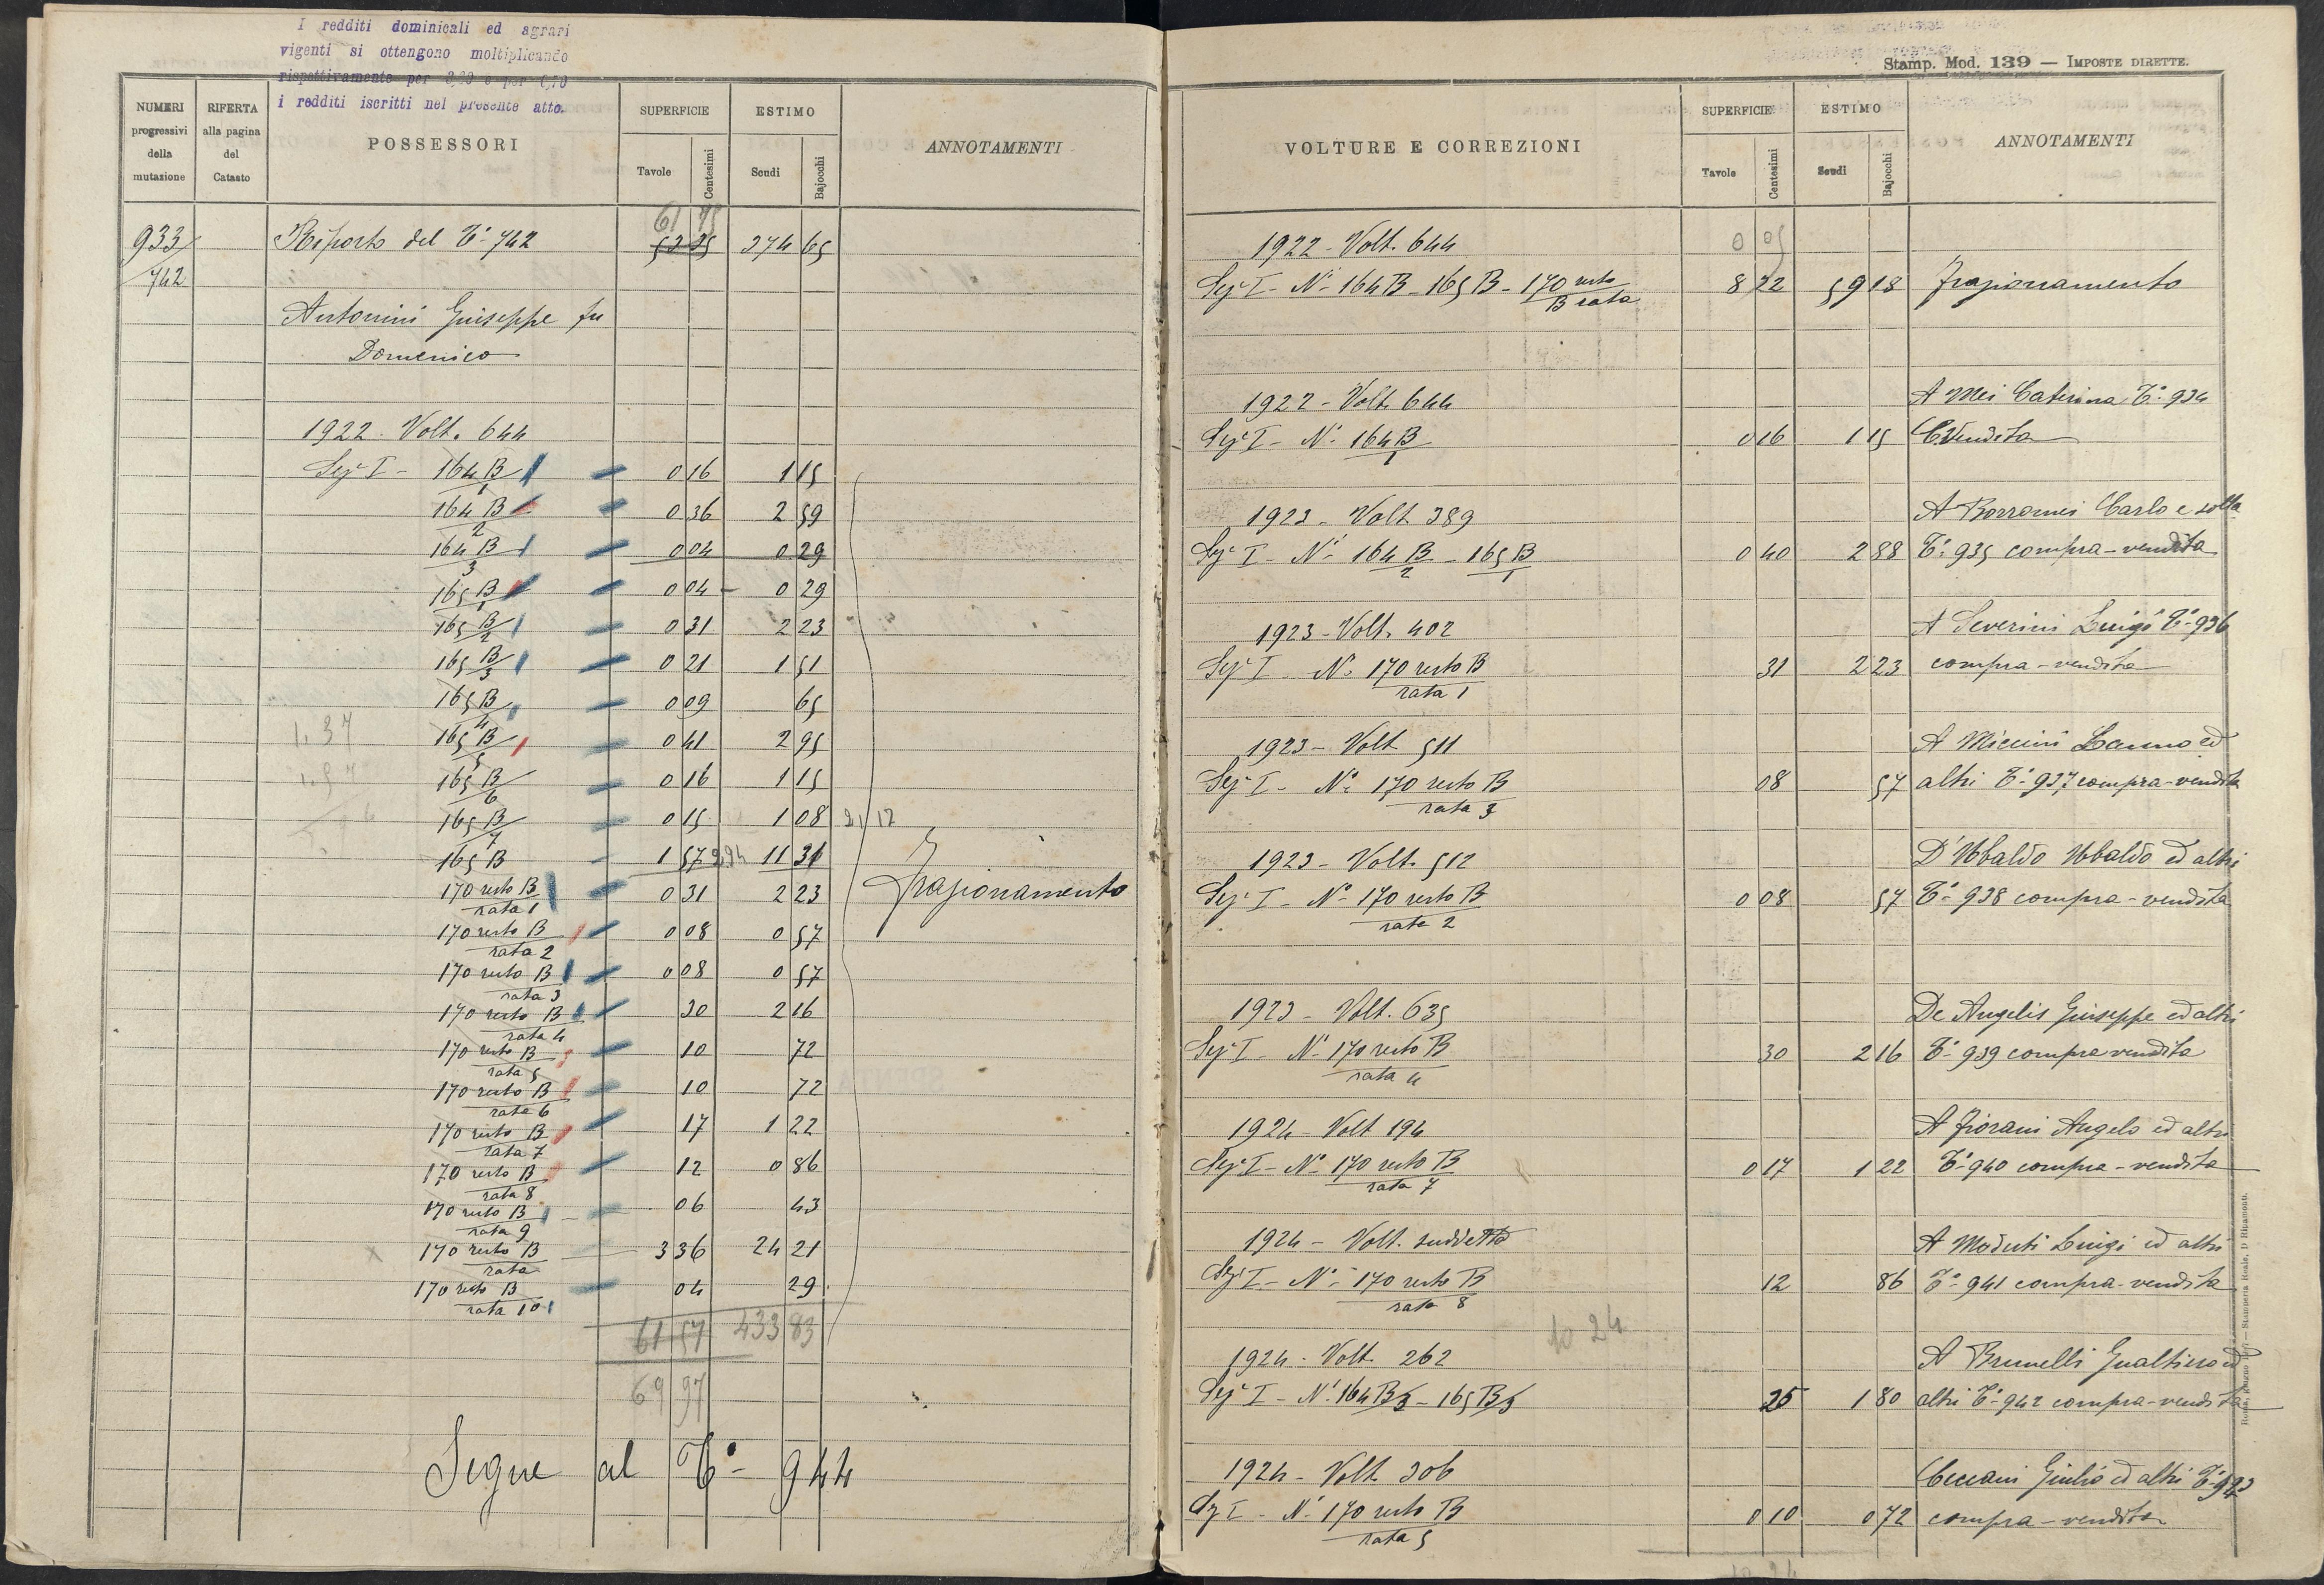 I redditi dominicali ed agrari
vigenti si ottengono moltiplicando
rispettivamente per e per
i redditi iscritti nel presente atto.
NUMERI progressivi della mutazione
RIFERTA alla pagina del Catasto
POSSESSORI
SUPERFICIE
Tavole Centesimi
ESTIMO
Scudi Bajocchi
ANNOTAMENTI
61 98
933 Riporto del T.° 742 53 25 374 65
742
Antonini Giuseppe fu
Domenico
1922. Volt. 644
Sez.e I - 164 B/1 0 16 1 15
164 B/2 0 36 2 59
164 B/3 0 04 0 29
165 B/1 0 04 0 29
165 B/2 0 31 2 23
165 B/3 0 21 1 51
165 B/4 0 09 65
1.37 165 B/5 0 41 2 95
165 B/6 0 16 1 15
165 B/7 0 15 1 08 21 12
165 B 1 57 11 31
170 resto B/rata 1 0 31 2 23 frazionamento
170 resto B/rata 2 0 08 0 57
170 resto B/rata 3 0 08 0 57
170 resto B/rata 4 30 2 16
170 resto B/rata 5 10 72
170 resto B/rata 6 10 72
170 resto B/rata 7 17 1 22
170 resto B/rata 8 12 0 86
170 resto B/rata 9 06 43
170 resto B/rata 3 36 24 21
170 resto B/rata 10 04 29
61 57 433 83
69 97
Segue al T.° 944
Stamp. Mod. 139 — IMPOSTE DIRETTE.
VOLTURE E CORREZIONI
SUPERFICIE
Tavole Centesimi
ESTIMO
Scudi Bajocchi
ANNOTAMENTI
1922 - Volt. 644 0 05
Sez.e I - N.i 164 B - 165 B - 170 resto/B rata 8 22 59 18 frazionamento
1922 - Volt. 644 A Mei Caterina T.° 934
Sez.e I - N.° 164 B/1 0 16 1 15 C. Vendita
1923 - Volt 389 A Borromei Carlo e
Sez.e I - N.i 164 B/2 - 165 B/1 0 40 2 88 T.° 935 compra-vendita
1923 - Volt. 402 A Severini Luigi T.° 936
Sez.e I - N.° 170 resto B/rata 1 31 2 23 compra-vendita
1923 - Volt 511 A Miccini ed
Sez.e I - N.° 170 resto B/rata 3 08 57 altri T.° 937 compra-vendita
1923 - Volt. 512 D'Ubaldo Ubaldo ed altri
Sez.e I - N.° 170 resto B/rata 2 0 08 57 T.° 938 compra-vendita
1923 - Volt. 635 De Angelis Giuseppe ed altri
Sez.e I - N.° 170 resto B/rata 4 30 2 16 T.° 939 compra vendita
1924 - Volt 194 A Fiorani Angelo ed altri
Sez.e I - N.° 170 resto B/rata 7 0 17 1 22 T.° 940 compra-vendita
1924 - Volt. suddetta A Moduti Luigi ed altri
Sez.e I - N.° 170 resto B/rata 8 12 86 T.° 941 compra-vendita
10 24
1924 - Volt. 262 A Brunelli Gualtiero ed
Sez.e I - N.i 164 B/3 - 165 B/3 25 1 80 altri T.° 942 compra-vendita
1924 - Volt. 306 Ceccani Giulio ed altri T.° 943
Sez.e I - N.° 170 resto B/rata 5 0 10 0 72 compra-vendita
10 24